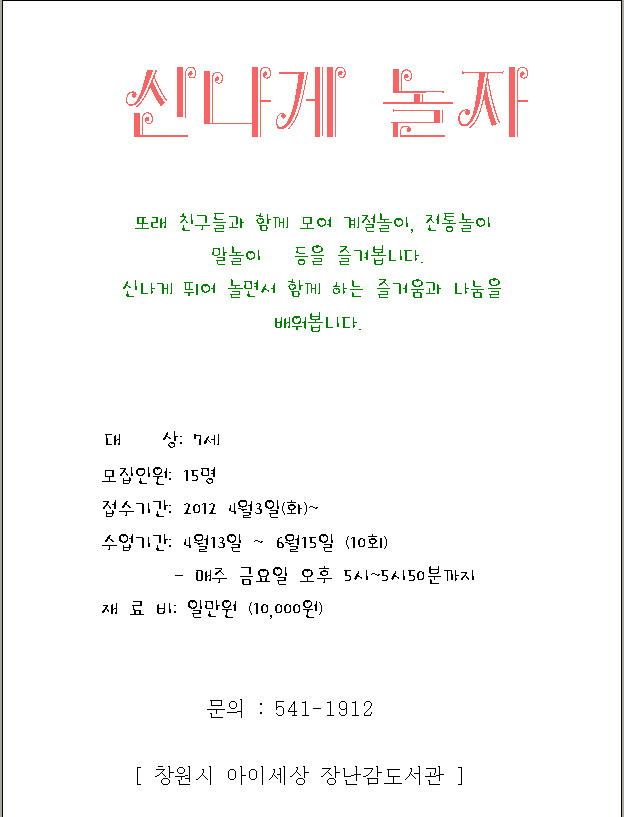 신나게 놀자
또래 친구들과 함께 모여 계절놀이, 전통놀이
말놀이 등을 즐겨봅니다.
신나게 뛰어 놀면서 함께 하는 즐거움과 나눔을
배워봅니다.
대 상: 7세
모집인원: 15명
접수기간: 2012 4월3일(화)~
수업기간: 4월13일 ~ 6월15일 (10회)
- 매주 금요일 오후 5시~5시50분까지
재 료 비: 일만원 (10,000원)
문의 : 541-1912
[ 창원시 아이세상 장난감도서관 ]